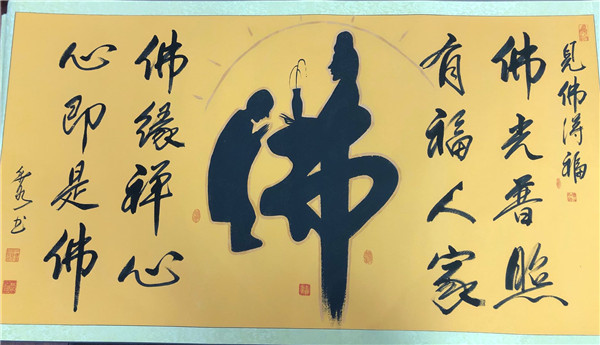 见佛得福
佛光普照
有福人家
佛
佛缘禅心
心即是佛